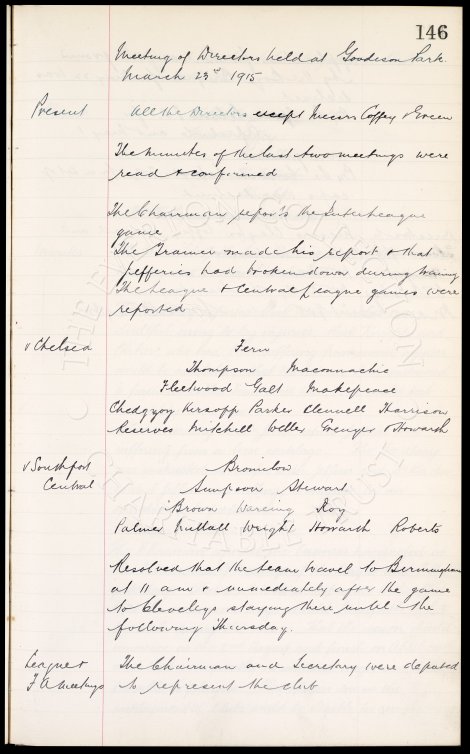 146
Meeting of Directors held at Goodison Park
March 23rd 1915
Present All the Directors except Messrs Coffey & Green
The minutes of the last two meetings were
read & confirmed
The Chairman reports the Interleague
game
The Trainer made his report & that
Jefferies had broken down during training
The League & Central League games were
reported
v Chelsea Fern
Thompson Maconnachie
Fleetwood Galt Makepeace
Chedgzoy Kirsopp Parker Clennell Harrison
Reserves Mitchell Weller Grenyer & Howarth
v Southport Bromilow
Central Simpson Stewart
Brown Wareing Roy
Palmer Nuttall Wright Howarth Roberts
Resolved that the team travel to Birmingham
at 11 am & immediately after the game
to Cleveleys staying there until the
following Thursday.
League & The Chairman and Secretary were deputed
F A Meetings to represent the club
THE EVERTON COLLECTION
CHARITABLE TRUST